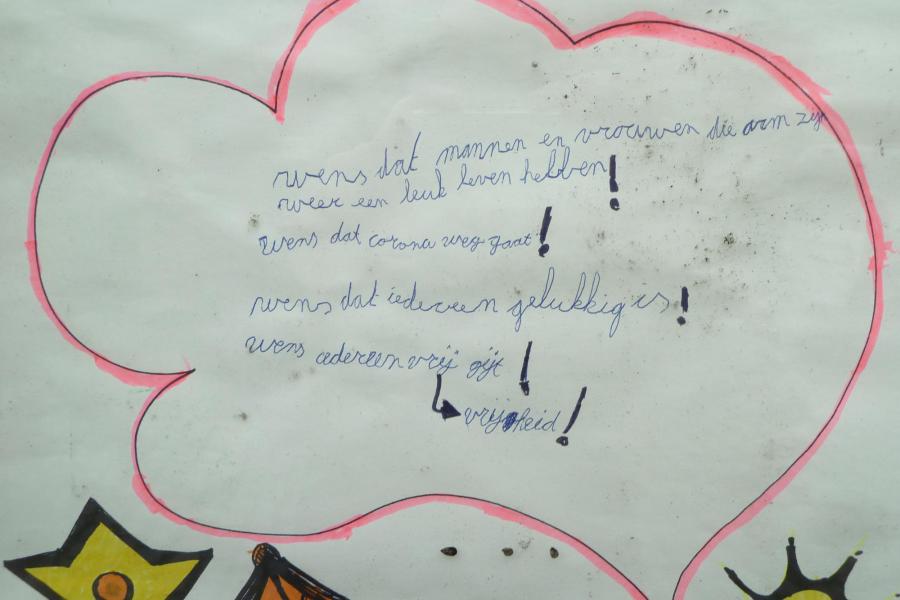 wens dat mannen en vrouwen die arm zijn
weer een leuk leven hebben!
wens dat corona weg gaat!
wens dat iedereen gelukkig is!
wens iedereen vrij zijt!
vrijheid!